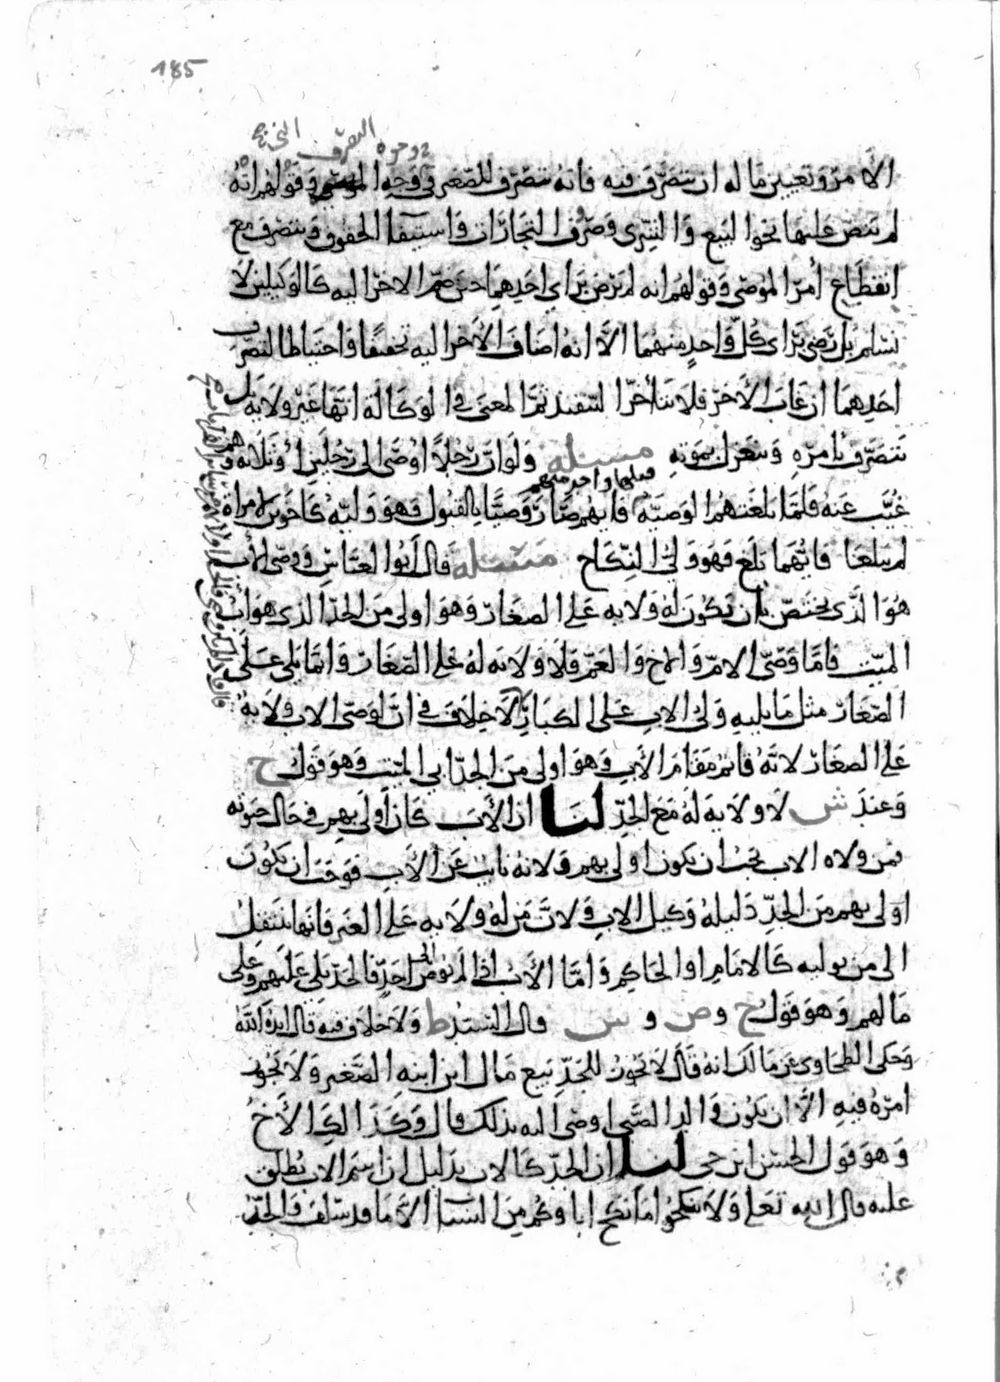 185
وجوه التصرف
الأمر وتعيين ما له ان يتصرف فيه فانه يتصرف للصغير في وجه وقولهم انه
لم ينص عليها نحو البيع والشرى وصرف التجارات واستيفا الحقوق ويتصرف مع
انقطاع أمر الموصي وقولهم انه لم يرض براي احدهما حتى ضم الاخر اليه كالوكيلين لا
نسلم بل رضي براي كل واحد منهما الا انه اضاف الأخر اليه تحقيقا واحتياطا لتصرف
احدهما ان غاب الأخر فلا يتأخر التنفيذ ثم المعنى في الوكالة انها غير ولاية بل
يتصرف بامره وينعزل بموته مسئلة ولو ان رجلا اوصى الى رجلين او ثلاثة وهم
فقبلها واحد منهم
غيب عنه فلما بلغتهم الوصية فايهم صار وصيا بالقبول فهو وليه كاخوين لامراة
لم يبلغا فايهما بلغ فهو ولي النكاح مسئلة قال أبوا العباس في وصي الأب
هو الذي يختص بان تكون له ولاية على الصغار وهو اولى من الجد الذي هو اب
الميت فاما وصي الام والاخ والعم فلا ولاية له على الصغار وانما يلي على
الصغار مثل ما يليه ولي الاب على الكبار لا خلاف في ان لوصي الاب ولاية
على الصغار لانه قائم مقام الأب وهو اولى من الجد ابي الميت وهو قول ح
وعند ش لا ولاية له مع الجد لنا ان الأب كان أولى بهم في حال حيوته
فمن ولاه الاب يجب ان يكون اولى بهم ولانه نايب عن الأب فوجب ان يكون
اولى بهم من الجد دليله وكيل الاب ولان من له ولاية على الغير فانها تنتقل
الى من يوليه كالامام او الحاكم واما الأب اذا لم يوص الى احد فالجد يلي عليهم وعلى
ما لهم وهو قول ح و ص و ش قال السيد ط ولا خلاف فيه قال ايده الله
وحكى الطحاوي عن مالك انه قال لا يجوز للجد بيع مال ابن ابنه الصغير ولا يجوز
امره فيه الا ان يكون والد الصبي اوصى اليه بذلك قال وكذلك الأخ
وهو قول الحسن ابن حي لنا ان الجد كالاب بدليل ان اسم الاب يطلق
عليه قال الله تعلى ولا تنكحوا ما نكح اباؤكم من النسا الا ما قد سلف والجد